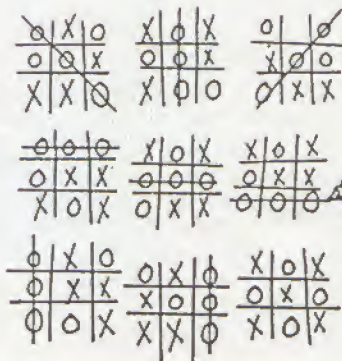 O X O
O O X
X X O
X O X
O O X
X O O
O O
O O
O X X
O O O
O X X
X O X
X O X
O O O
O X X
X O X
O X X
O O O
O X O
O X X
O O X
O X O
X O O
X X O
X O X
O X O
X O X